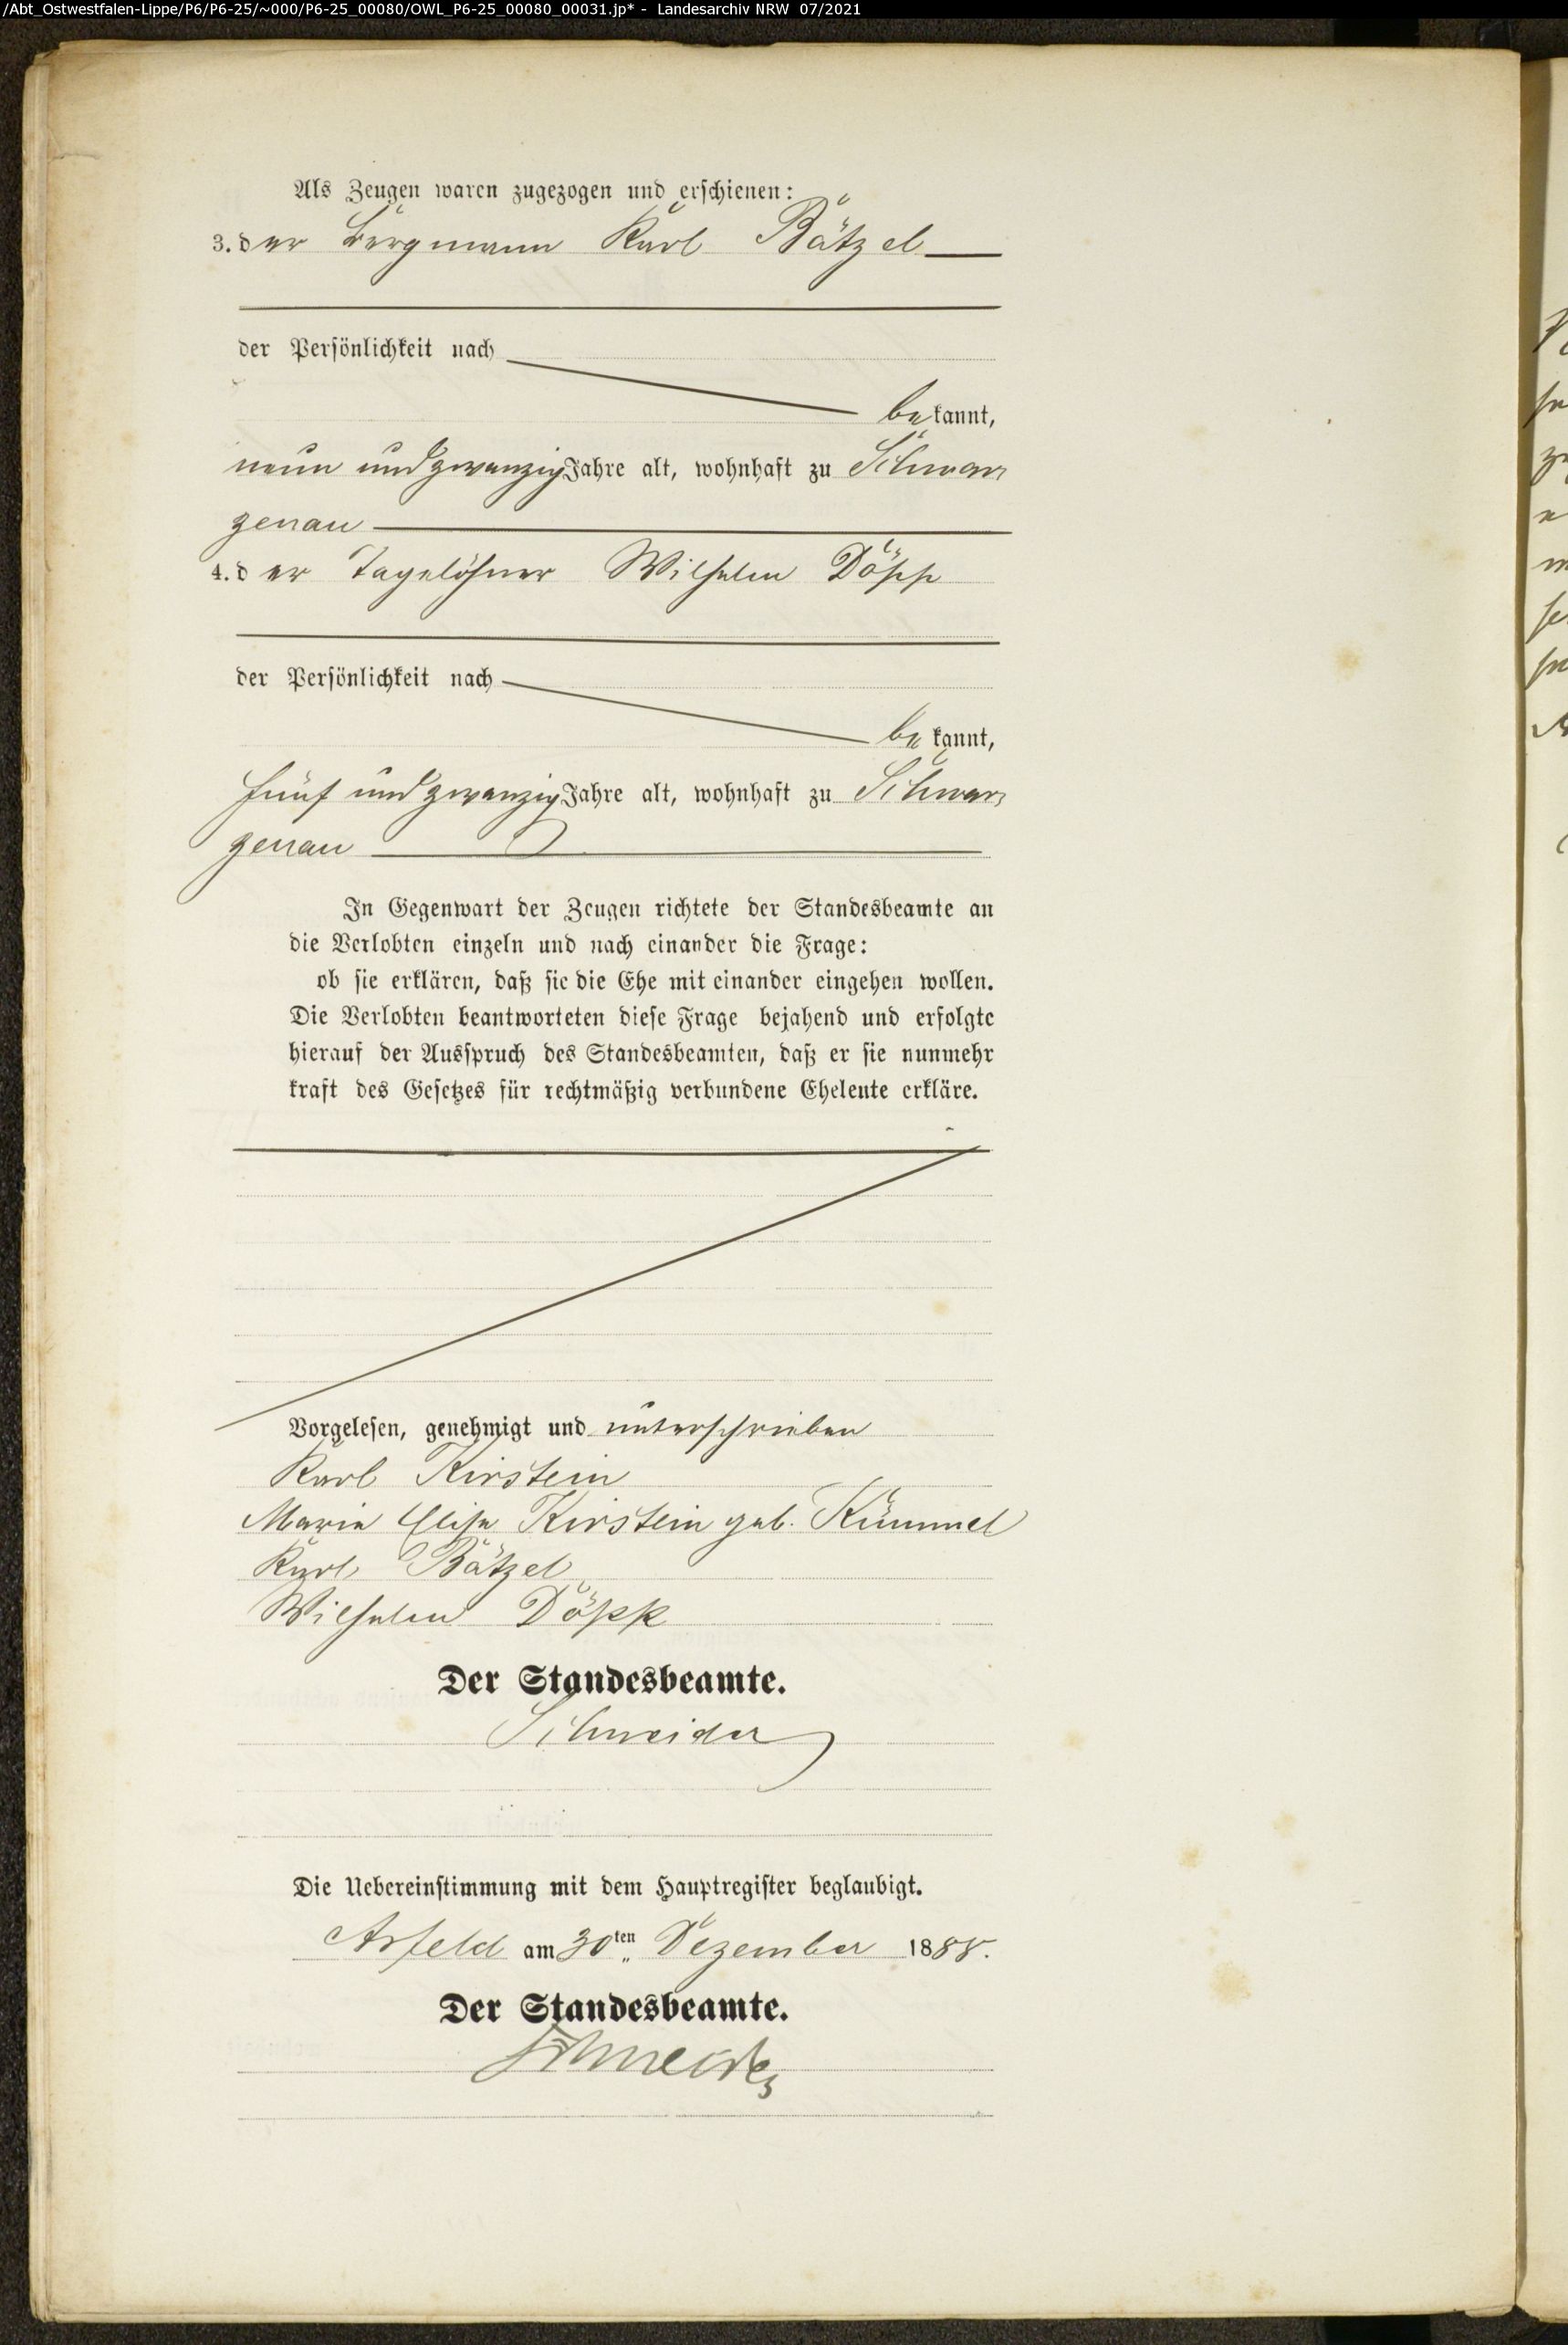 /Abt_Ostwestfalen-Lippe/P6/P6-25/~000/P6-25_00080/OWL_P6-25_00080_00031.jp* - Landesarchiv NRW 07/2021
Als Zeugen waren zugezogen und erschienen:
3. der Bergmann Karl Bätzel
der Persönlichkeit nach
bekannt,
neun und zwanzig Jahre alt, wohnhaft zu Schwar
zenau
4. der Tagelöhner Wilhelm Döpp
der Persönlichkeit nach
bekannt,
fünf und zwanzig Jahre alt, wohnhaft zu Schwar
zenau
In Gegenwart der Zeugen richtete der Standesbeamte an
die Verlobten einzeln und nach einander die Frage:
ob sie erklären, daß sie die Ehe mit einander eingehen wollen.
Die Verlobten beantworteten diese Frage bejahend und erfolgte
hierauf der Ausspruch des Standesbeamten, daß er sie nunmehr
kraft des Gesetzes für rechtmäßig verbundene Eheleute erkläre.
Vorgelesen, genehmigt und unterschrieben
Karl Kirstein
Maria Elise Kirstein geb. Kümmel
Karl Bätzel
Wilhelm Döpp
Der Standesbeamte.
Schneider
Die Uebereinstimmung mit dem Hauptregister beglaubigt.
Arfeld am 30ten Dezember 1888.
Der Standesbeamte.
Schneider